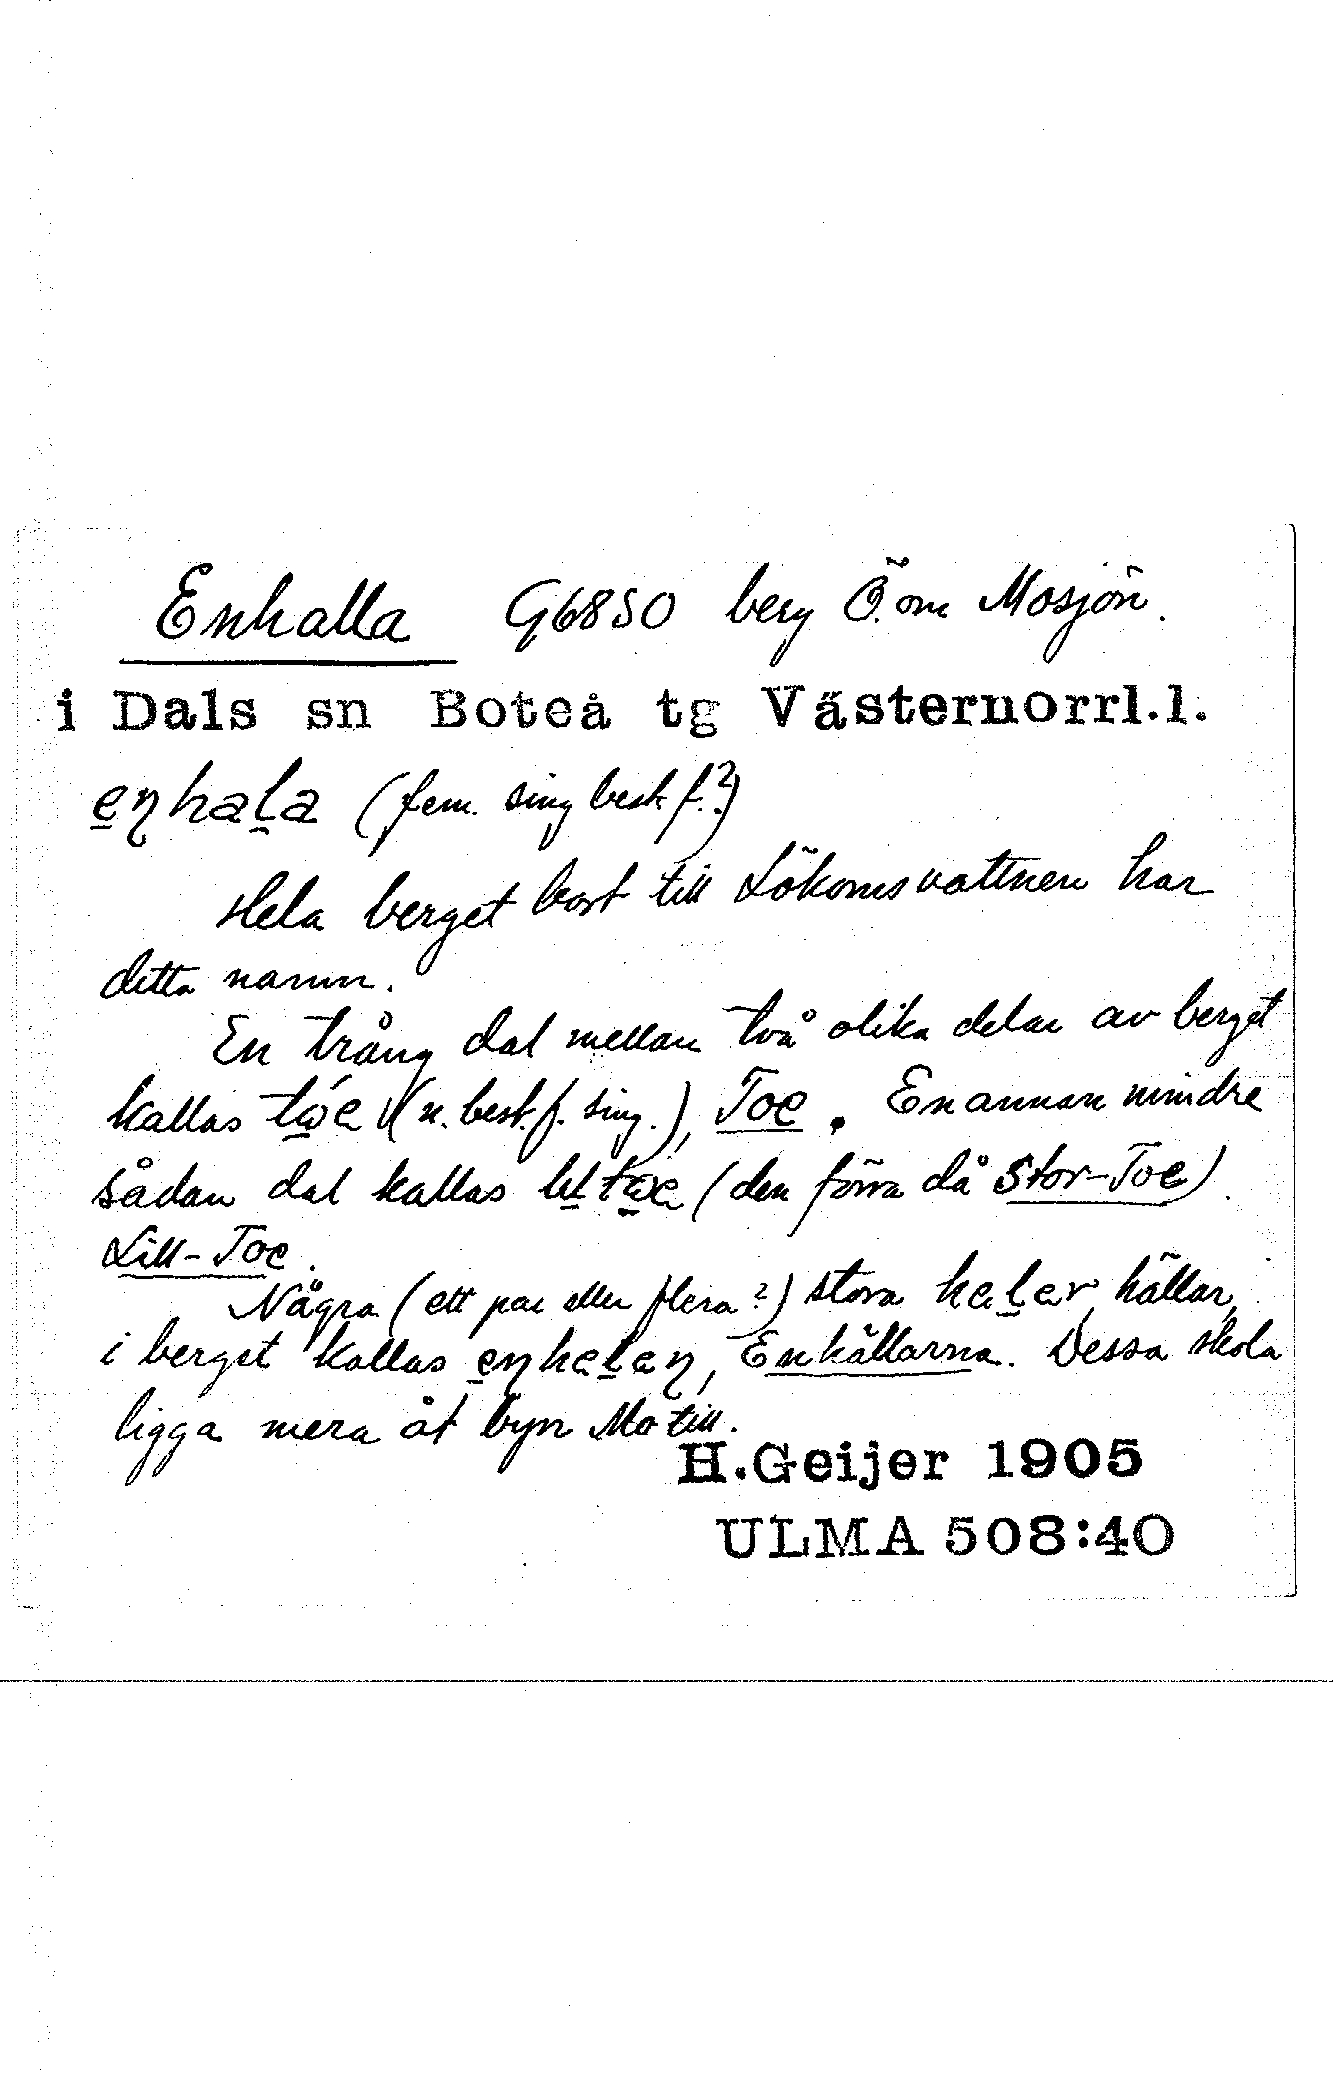 Enhalla G68SO berg Ö. om Mosjön.
i Dals sn Boteå tg Västernorrl.l.
eŋhala (fem. sing best f.?)
Hela berget bort till Lökomsvattnen har
detta namn.
En trång dal mellan två olika delar av berget
kallas (n. best. f. sing.), Toe. En annan mindre
sådan dal kallas (den förra då Stor-Toe)
Lill-Toe.
Några (ett par eller flera?) stora heler, hällar,
i berget kallas eŋheleŋ, Enhällarna. Dessa skola
ligga mera åt byn Mo till.
H.Geijer 1905
ULMA 508:40